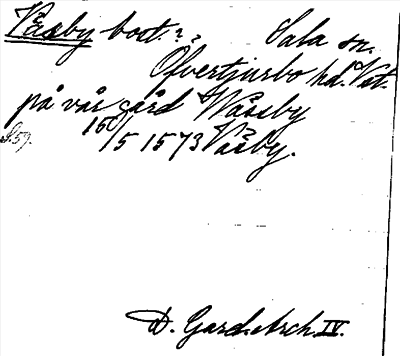 Väsby bost. ? ? Sala sn.
Öfvertjurbo hd. Vst.
på vår gård Wässby
S. 59. 15/5 1573 Väsby.
D. Gard. Arch. IV.